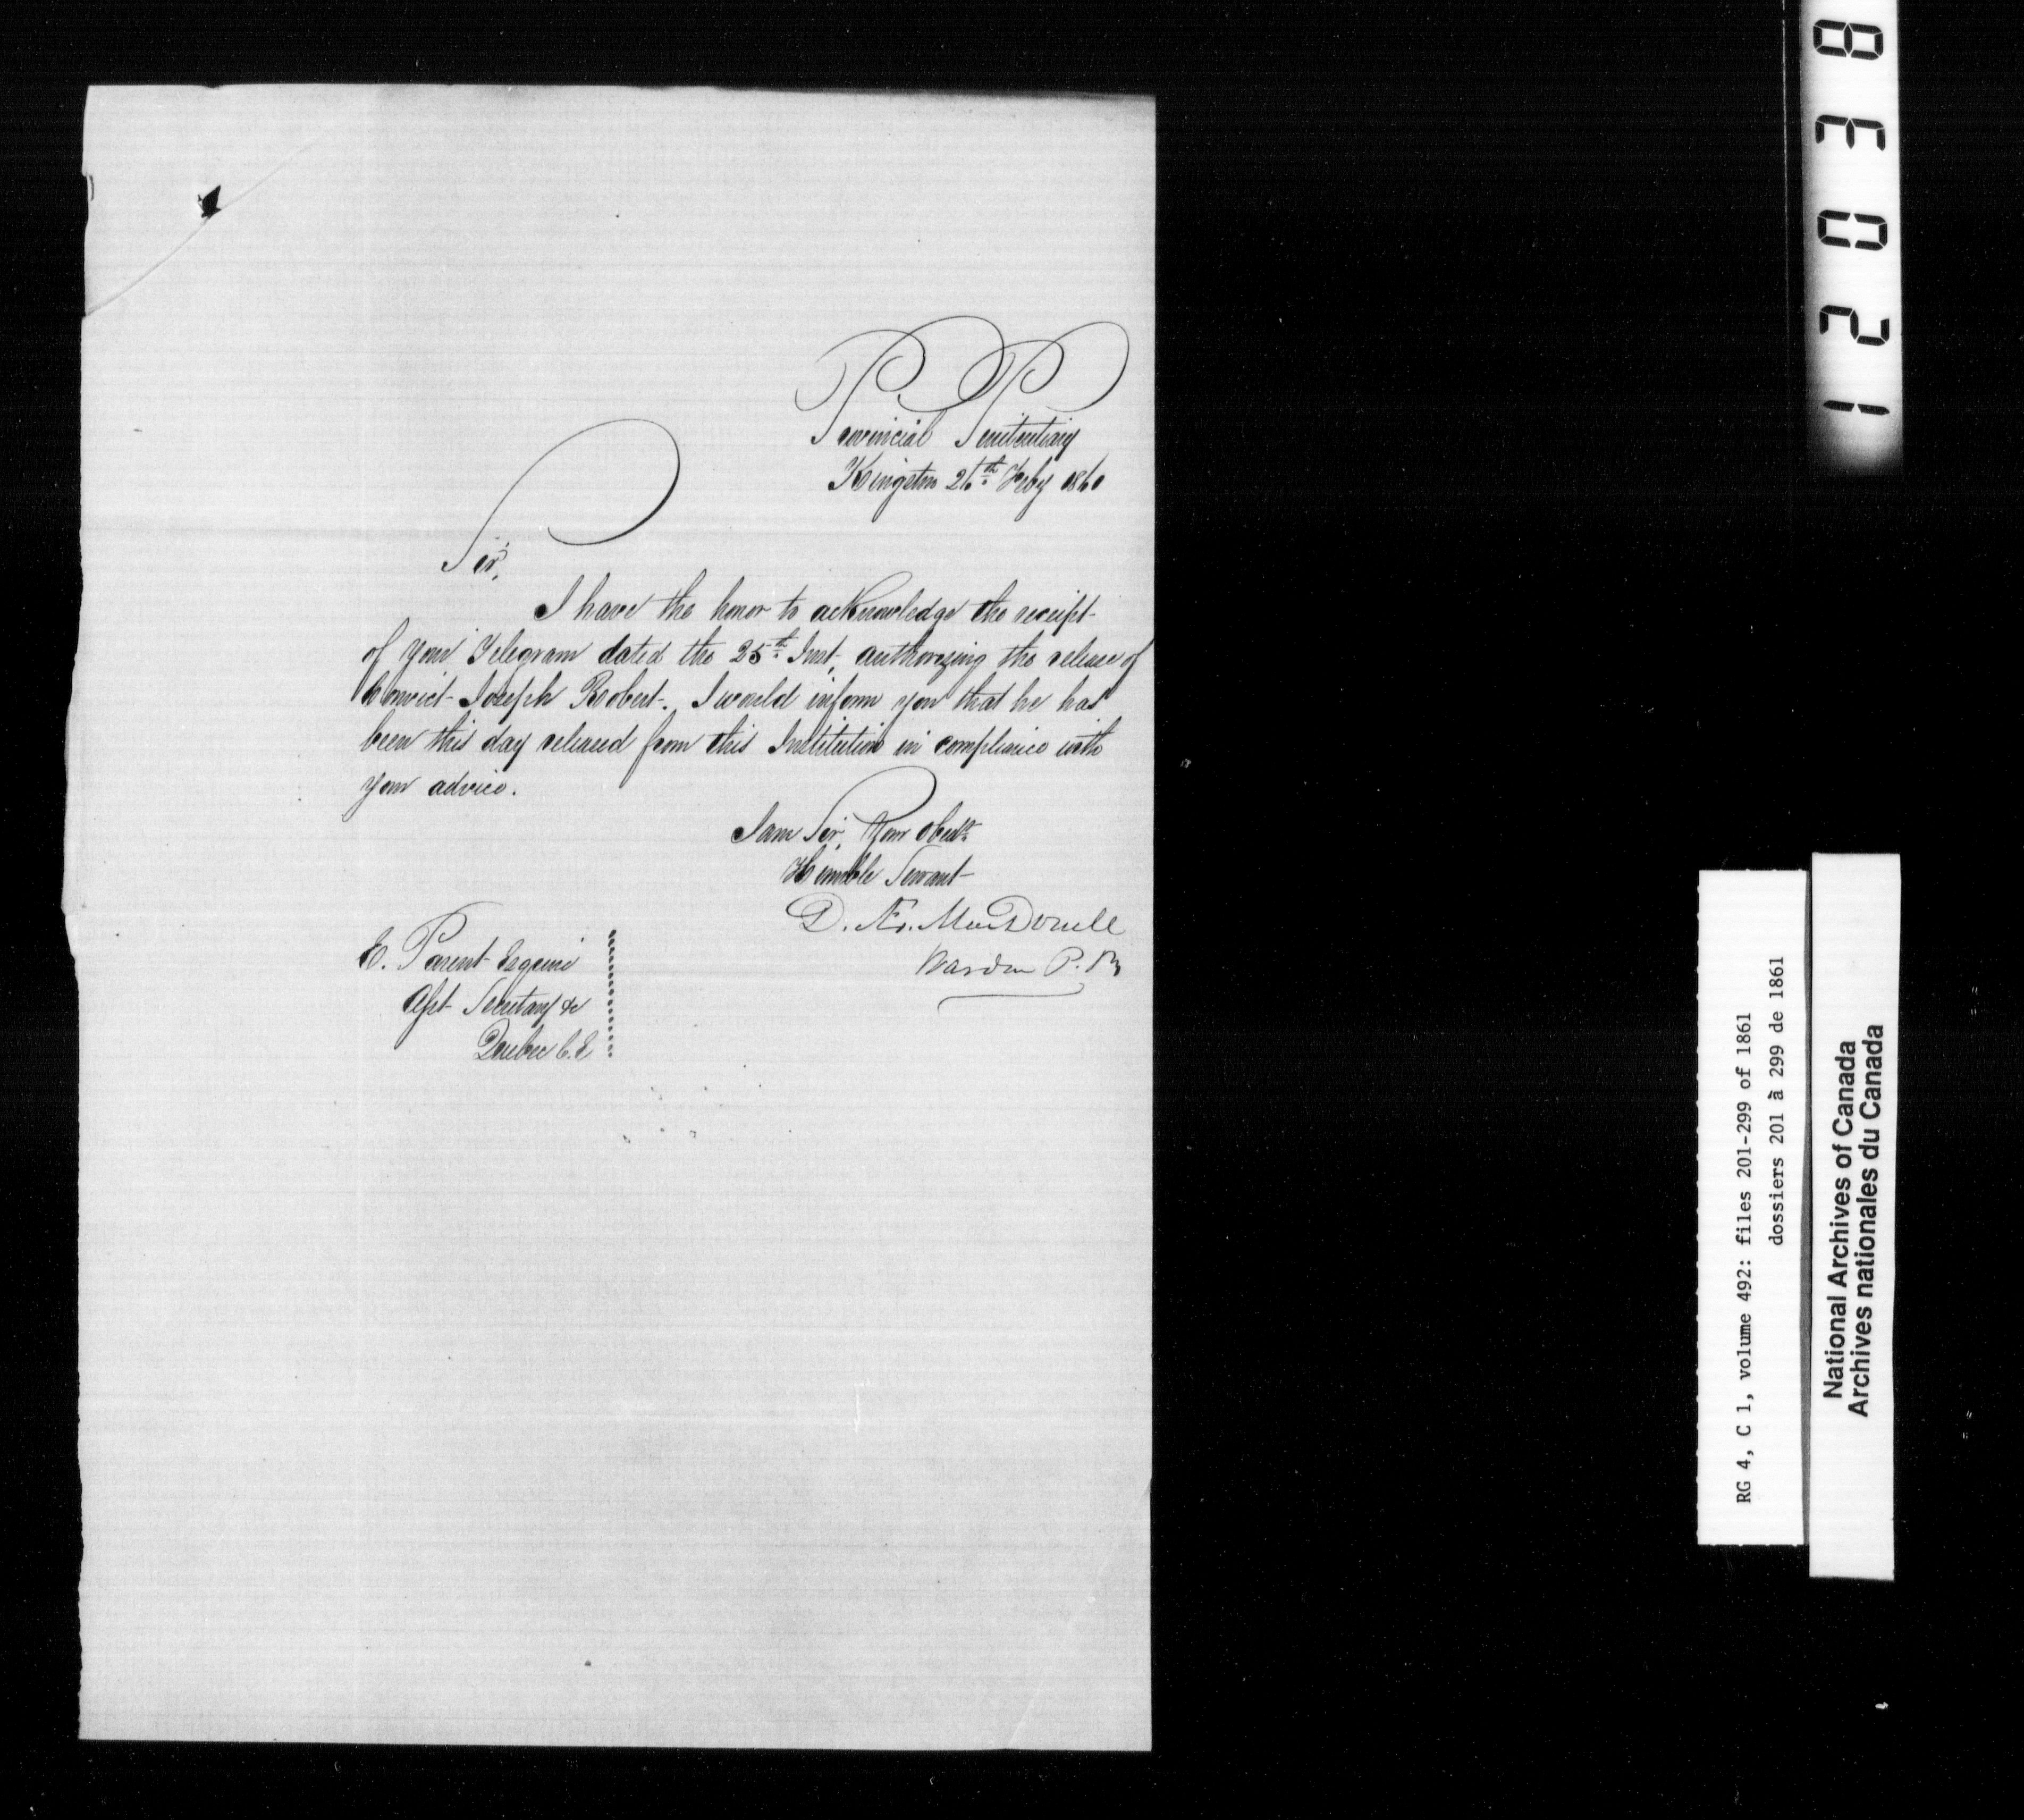 Provincial Penitentiary
Kingston 26th Feby 1860
Sir,
I have the honor to acknowledge the receipt
of your Telegram dated the 25th Inst, authorizing the release of
Convict Joseph Robert. I would inform you that he has
been this day released from this Institution in compliance with
your advice.
I am Sir, Your obedt
Humble Servant
D. Æ. MacDonell
Warden P. P.
E. Parent Esquire
Asst Secretary &c
Quebec C.E
83021
RG 4, C 1, volume 492: files 201-299 of 1861
dossiers 201 à 299 de 1861
National Archives of Canada
Archives nationales du Canada